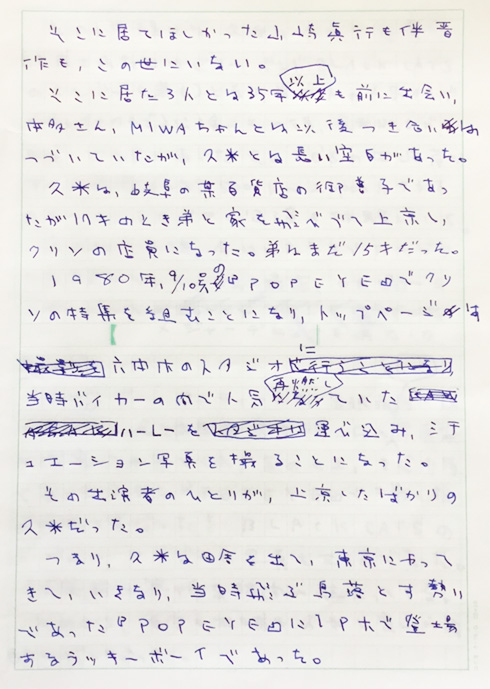 そこに居てほしかった山崎眞行も伴晋
作も、この世にいない。
そこに居た3人とは35年以上も前に出会い、
さん、MIWAちゃんとは以後つき合いは
つづいていたが、久米とは長い空白があった。
久米は、岐阜の某百貨店の御曹子であっ
たが17才のとき弟と家をとびでて上京し、
クリソの店員になった。弟はまだ15才だった。
1980年、9/10号の『POPEYE』でクリ
ソの特集を組むことになり、トップページは
六本木のスタジオに
当時バイカーの内で人気再燃していた
ハーレーを運び込み、シチ
ュエーション写真を撮ることになった。
その出演者のひとりが、上京したばかりの
久米だった。
つまり、久米は田舎を出て、東京にやって
きて、いきなり、当時飛ぶ鳥落とす勢い
であった『POPEYE』に1P大で登場
するラッキーボーイであった。